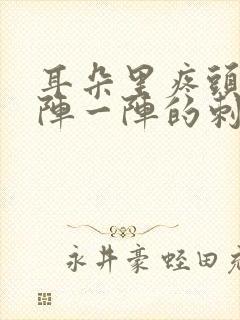 耳朵里疼頭
陣一陣的刺
永井豪蛭田充